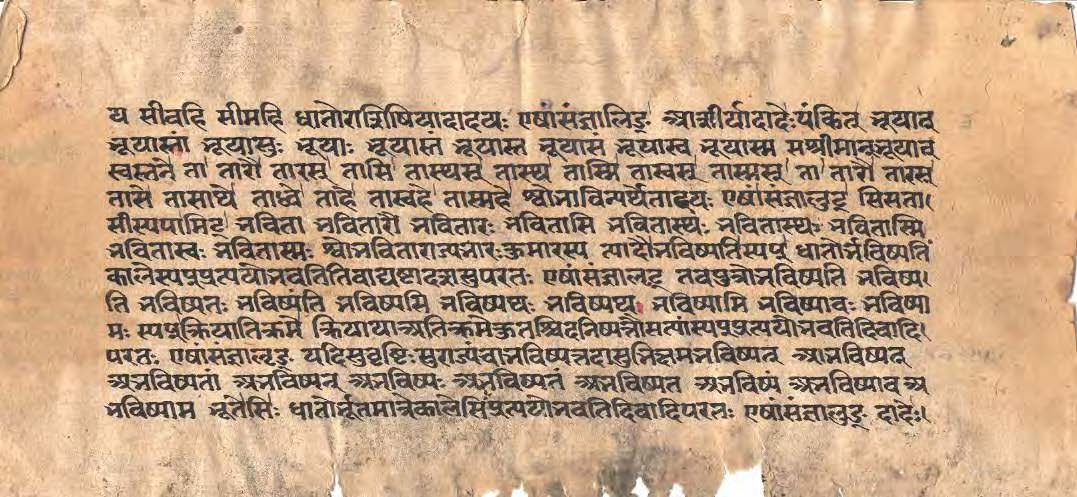 य सीवहि सीमहि धातोराशिषियादादयः एषांसंज्ञालिङ् आशीर्यादादेःपंकित् भूयात्
भूयास्तां भूयासुः भूयाः भूयास्तं भूयास्त भूयासं भूयास्व भूयास्म मश्रीमान्भूयात्
श्वस्तने ता तारौ तारस् तासि तास्थस् तास्थ तास्मि तास्वस् तास्मस् ता तारौ तारस्
तासे तासाथे ताध्वे ताहे तास्वहे तास्महे श्वोभाविन्यर्थेताद्यः एषांसंज्ञालुट् सिसता।
सीस्यपामिट् भविता भवितारौ भवितारः भवितासि भवितास्थः भवितास्थः भवितास्मि
भवितास्वः भवितास्मः श्वोभविताराज्यभारःकुमारस्य त्यादौभविष्यतिस्यप् धातोर्भविष्यतिं
कालेस्यप्प्रत्ययोभवतितिवाद्यष्टादशसुपरतः एषांसंज्ञालृट् तवपुत्रोभविष्यति भविष्य।
ति भविष्यतः भविष्यंति भविष्यसि भविष्यथः भविष्यथ भविष्यामि भविष्यावः भविष्या
मः स्यप्क्रियातिक्रमे क्रियायाअतिक्रमेकुतश्चिदनिष्पत्तौसत्यांस्यप्प्रत्ययोभवतिदिबादि।
परतः एषांसंज्ञालृङ् यदिसुवृष्टिःसुराज्यंवाभविष्यत्तदासुभिक्षमभविष्यत् अभविष्यत्
अभविष्यतां अभविष्यन् अभविष्यः अभविष्यतं अभविष्यत अभविष्यं अभविष्याव अ
भविष्याम भूतेसिः धातोर्भूतमात्रेकालेसिःप्रत्ययोभवतिदिबादिपरतः एषांसंज्ञालुङ् दादेः।